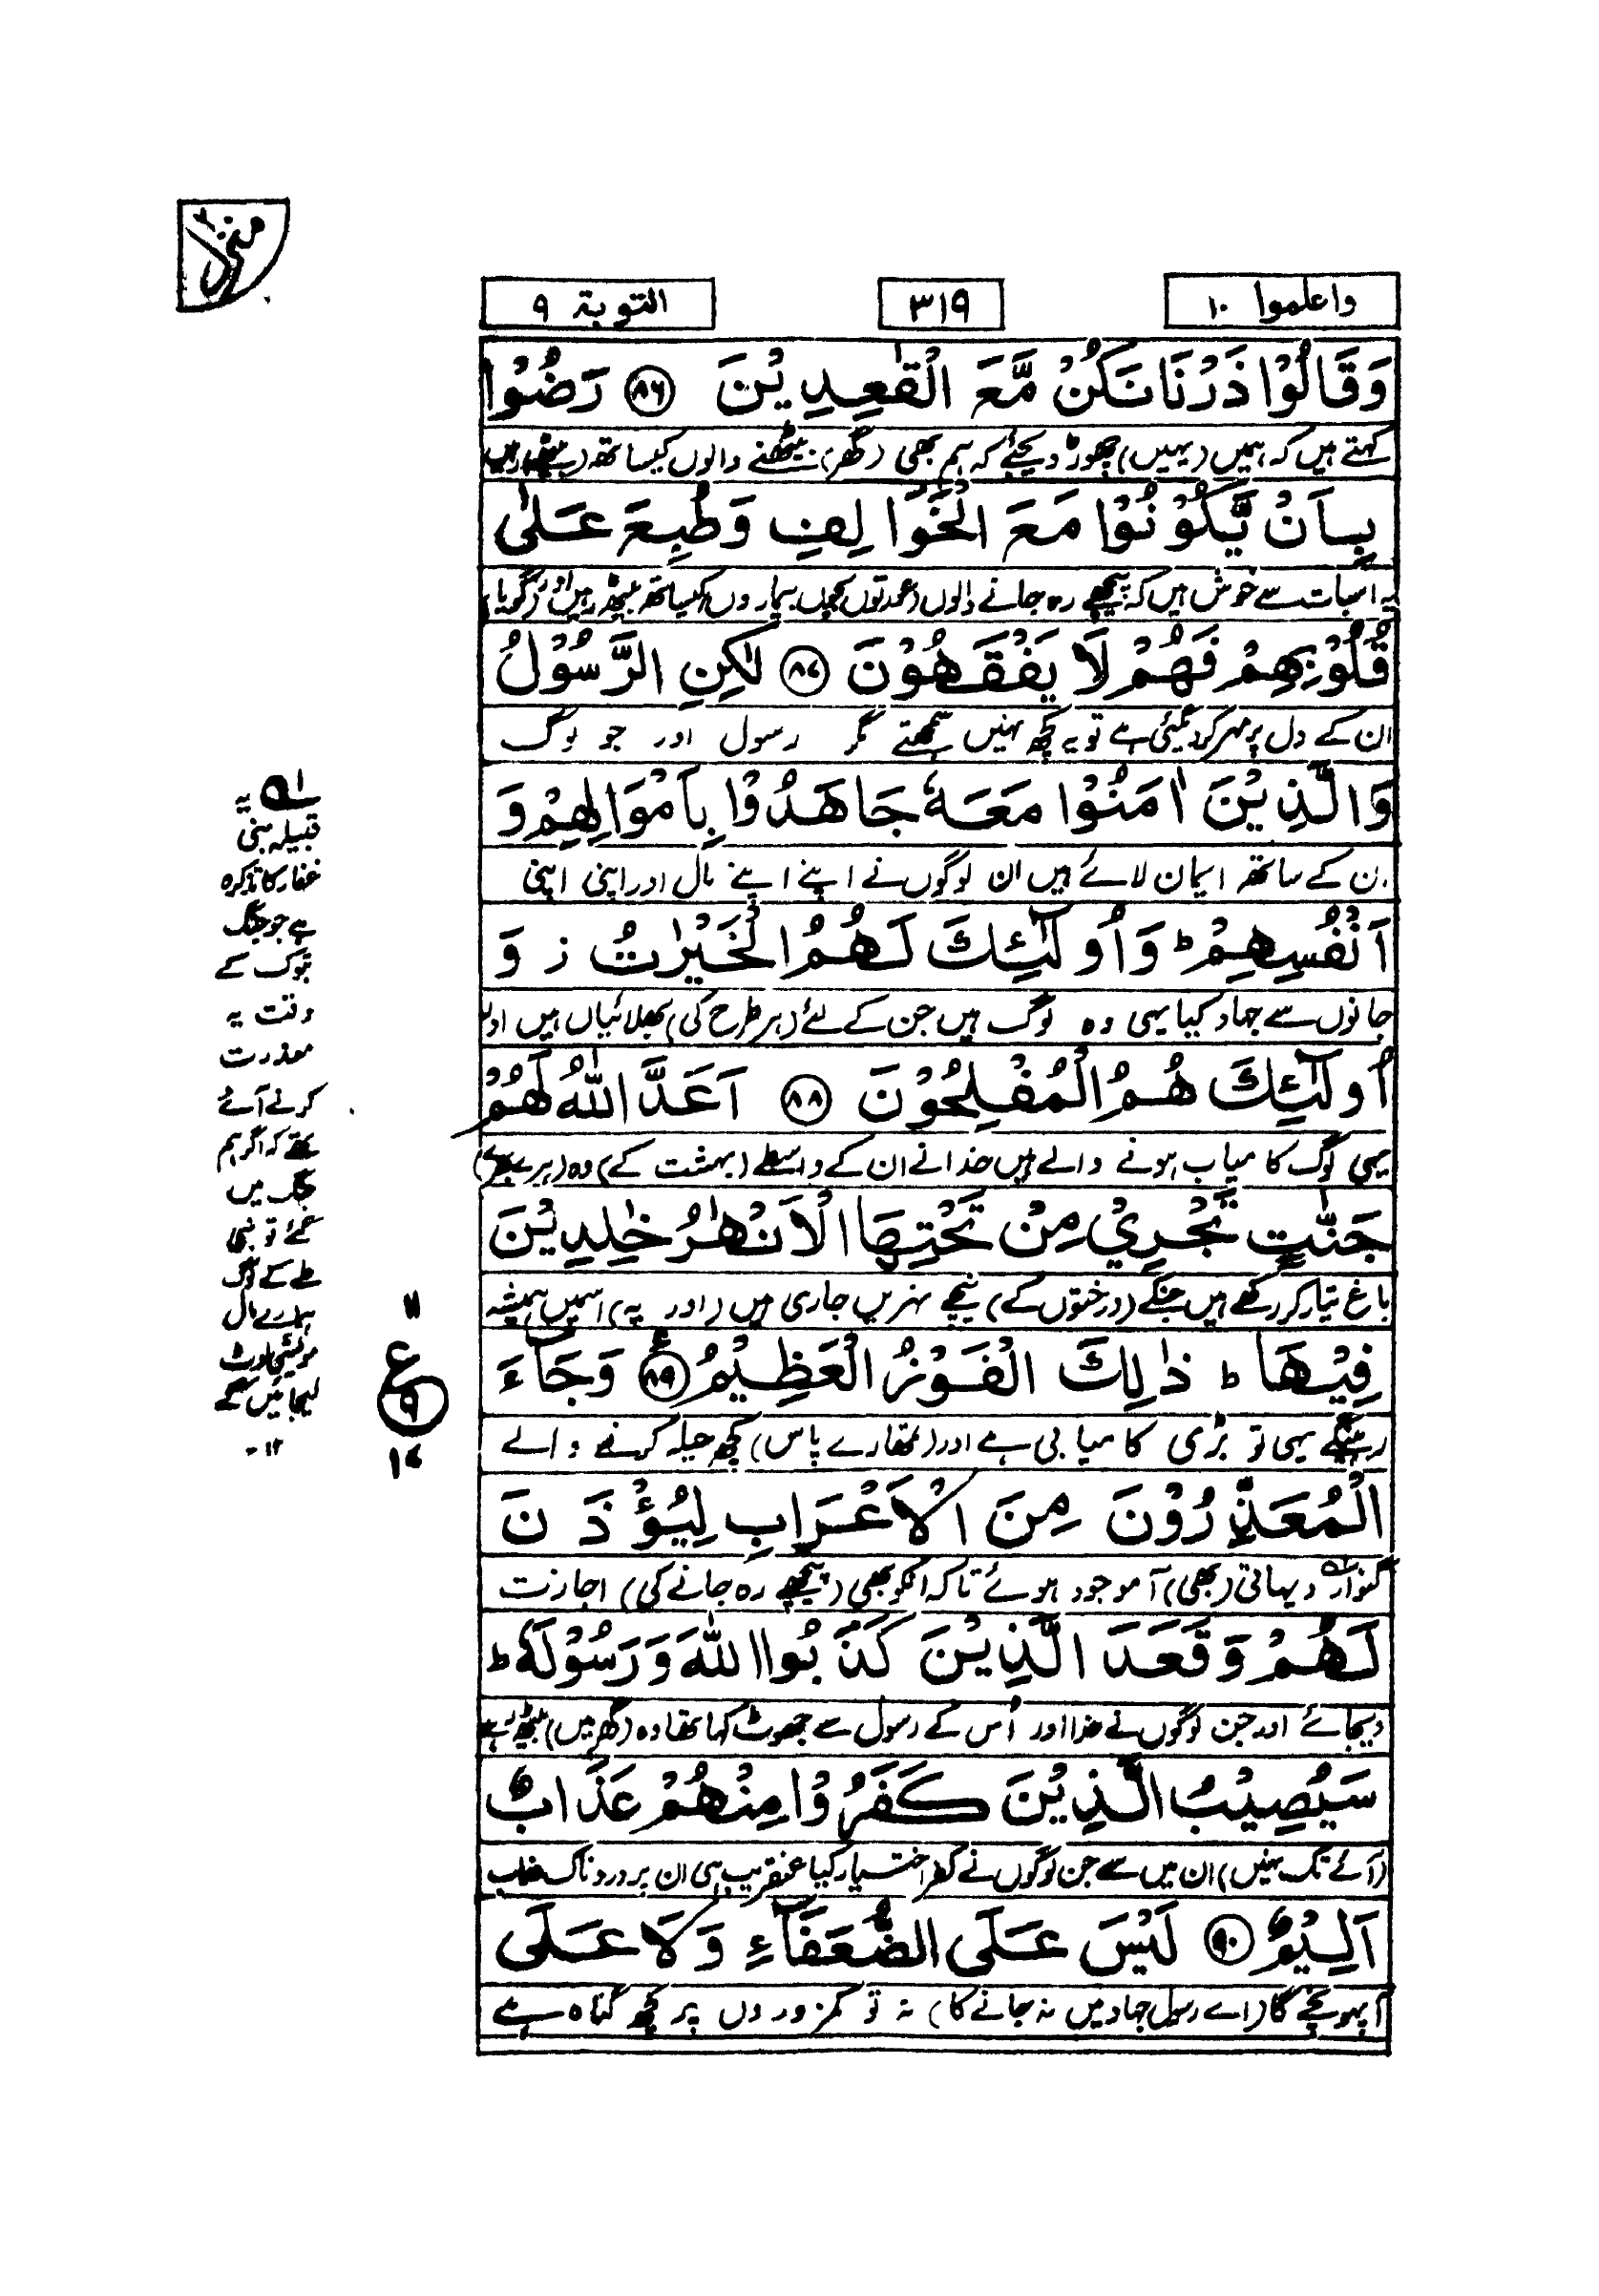 منزل ٢
واعلموا ١٠
٣١٩
التوبة ٩
وَقَالُوْا ذَرْنَا نَكُنْ مَّعَ الْقٰعِدِيْنَ ﴿٨٦﴾ رَضُوْا
کہتے ہیں کہ ہمیں (یہیں) چھوڑ دیجئے کہ ہم بھی (گھر) بیٹھنے والوں کیساتھ (بیٹھے رہیں
بِاَنْ يَّكُوْنُوْا مَعَ الْخَوَالِفِ وَطُبِعَ عَلٰى
یہ اسبات سے خوش ہیں کہ پیچھے رہ جانے والوں (عورتوں بچوں بیماروں) کیساتھ بیٹھے رہیں اور (گویا)
قُلُوْبِهِمْ فَهُمْ لَا يَفْقَهُوْنَ ﴿٨٧﴾ لٰكِنِ الرَّسُوْلُ
ان کے دل پر مہر کر دیگئی ہے تو یہ کچھ نہیں سمجھتے مگر رسول اور جو لوگ
وَالَّذِيْنَ اٰمَنُوْا مَعَهٗ جَاهَدُوْا بِاَمْوَالِهِمْ وَ
ان کے ساتھ ایمان لائے ہیں ان لوگوں نے اپنے اپنے مال اور اپنی اپنی
اَنْفُسِهِمْ ؕ وَاُولٰٓئِكَ لَهُمُ الْخَيْرٰتُ ز وَ
جانوں سے جہاد کیا یہی وہ لوگ ہیں جن کے لئے (ہر طرح کی) بھلائیاں ہیں اور
اُولٰٓئِكَ هُمُ الْمُفْلِحُوْنَ ﴿٨٨﴾ اَعَدَّ اللّٰهُ لَهُمْ
یہی لوگ کامیاب ہونے والے ہیں خدا نے ان کے واسطے (بہشت کے) وہ (ہرے بھرے)
جَنّٰتٍ تَجْرِيْ مِنْ تَحْتِهَا الْاَنْهٰرُ خٰلِدِيْنَ
باغ تیار کر رکھے ہیں جنکے (درختوں کے) نیچے نہریں جاری ہیں (اور یہ) اسمیں ہمیشہ
فِيْهَا ؕ ذٰلِكَ الْفَوْزُ الْعَظِيْمُ ﴿٨٩﴾ ع وَجَآءَ
رہینگے یہی تو بڑی کامیابی ہے اور (تمھارے پاس) کچھ حیلہ کرنے والے
الْمُعَذِّرُوْنَ مِنَ الْاَعْرَابِ لِيُؤْذَنَ
گنوار لہ دیہاتی (بھی) آ موجود ہوئے تاکہ انکو بھی (پیچھے رہ جانے کی) اجازت
لَهُمْ وَقَعَدَ الَّذِيْنَ كَذَبُوا اللّٰهَ وَرَسُوْلَهٗ ؕ
دیجائے اور جن لوگوں نے خدا اور اُس کے رسول سے جھوٹ کہا تھا وہ (گھر میں) بیٹھ رہے
سَيُصِيْبُ الَّذِيْنَ كَفَرُوْا مِنْهُمْ عَذَابٌ
(آئے تک نہیں) ان میں سے جن لوگوں نے کفر اختیار کیا عنقریب ہی ان پر دردناک عذاب
اَلِيْمٌ ﴿٩٠﴾ لَيْسَ عَلَى الضُّعَفَآءِ وَلَا عَلَى
آ پہونچے گا (اے رسول جہاد میں نہ جانے کا) نہ تو کمزوروں پر کچھ گناہ ہے
لہ یہ
قبیلہ بنی
غفار کا تذکرہ
ہے جو جنگ
تبوک کے
وقت یہ
معذرت
کرنے آئے
تھے کہ اگر ہم
جنگ میں
گئے تو بنی
طے کے لوگ
ہمارے مال
مویشی لوٹ
لیجائیں گے
۱۲-
١١
ع
٩
١٧